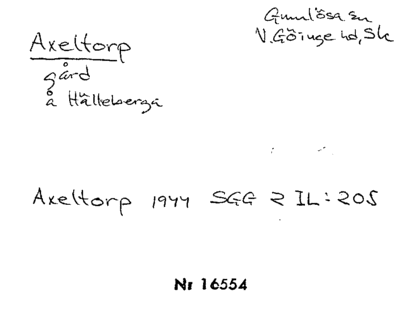 Axeltorp
gård
å Hälleberga
Gumlösa sn
V. Göinge hd, Sk
Axeltorp 1944 SGG 2 IL: 205
Nr 16554